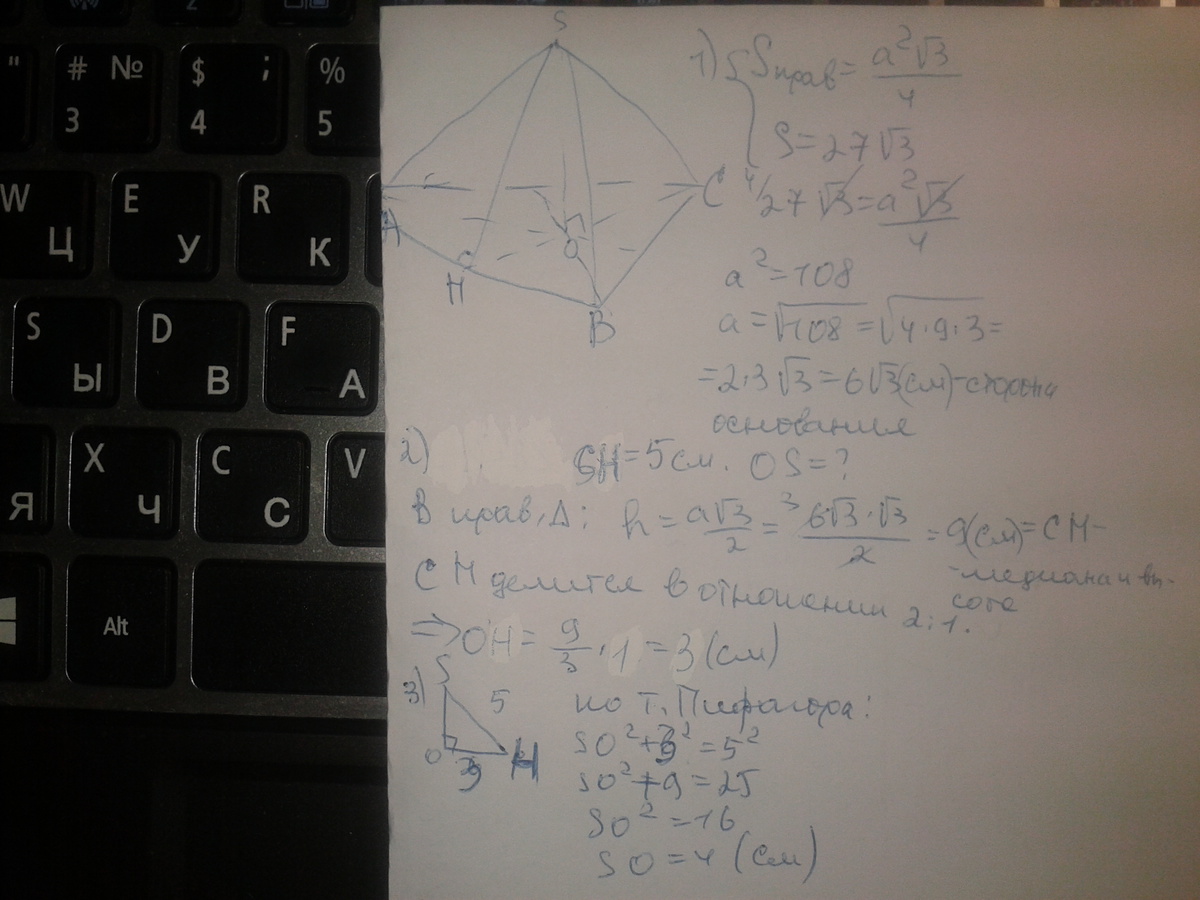 " # № $ ; %
3 4 5
W Ц E У R К
S Ы D В F А
Я X Ч C С V
Alt
S
A
C
H
O
B
1) { Sправ = a²√3/4
S = 27√3
4/ 27√3 = a²√3/4
a² = 108
a = √108 = √4·9·3 =
= 2·3√3 = 6√3(см) - сторона
основания
2) SH = 5 см. OS = ?
В прав. Δ: h = a√3/2 = ³6√3·√3/2 = 9(см) = CH -
- медиана и вы-
сота
CH делится в отношении 2:1.
=> OH = 9/3 · 1 = 3 (см)
3) S 5 O 3 H
по т. Пифагора:
SO² + 3² = 5²
SO² + 9 = 25
SO² = 16
SO = 4 (см)